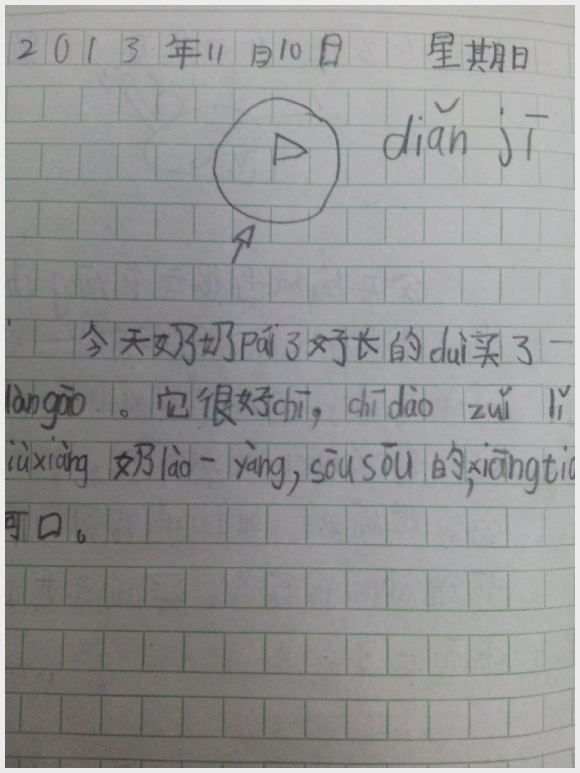 2013年11月10日 星期日
diǎn jī
今天奶奶pái了好长的duì买了一
dàngāo。它很好chī，chī dào zuǐ lǐ
jiùxiàng 奶lào一 yàng，sōu sōu 的，xiāng tiá
可口。